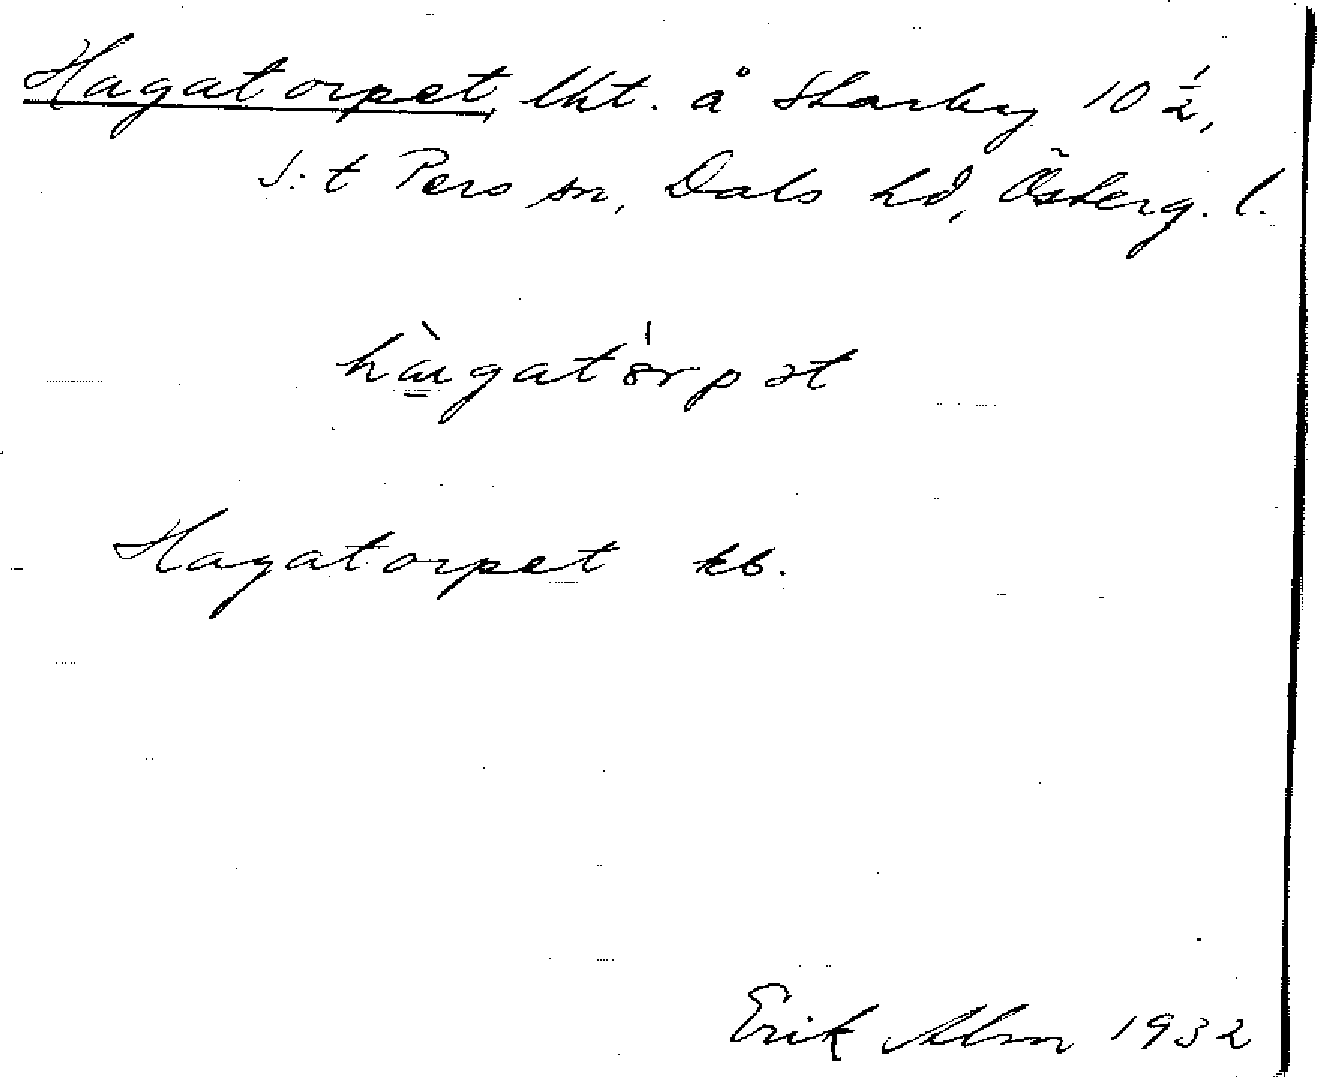 Hagatorpet, lht. å Starby 10 1/2,
S:t Pers sn, Dals hd, Österg. l.
hàgatórpət
Hagatorpet kb.
Erik Alm 1932